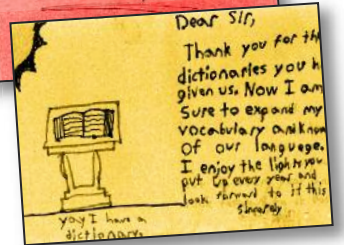 Dear Sir,
Thank you for th
dictionaries you h
given us. Now I am
Sure to expand my
vocabulary and know
Of our language.
I enjoy the lights you
put up every year and
look forward to it this
Sincerely
yay I have a
dictionary.